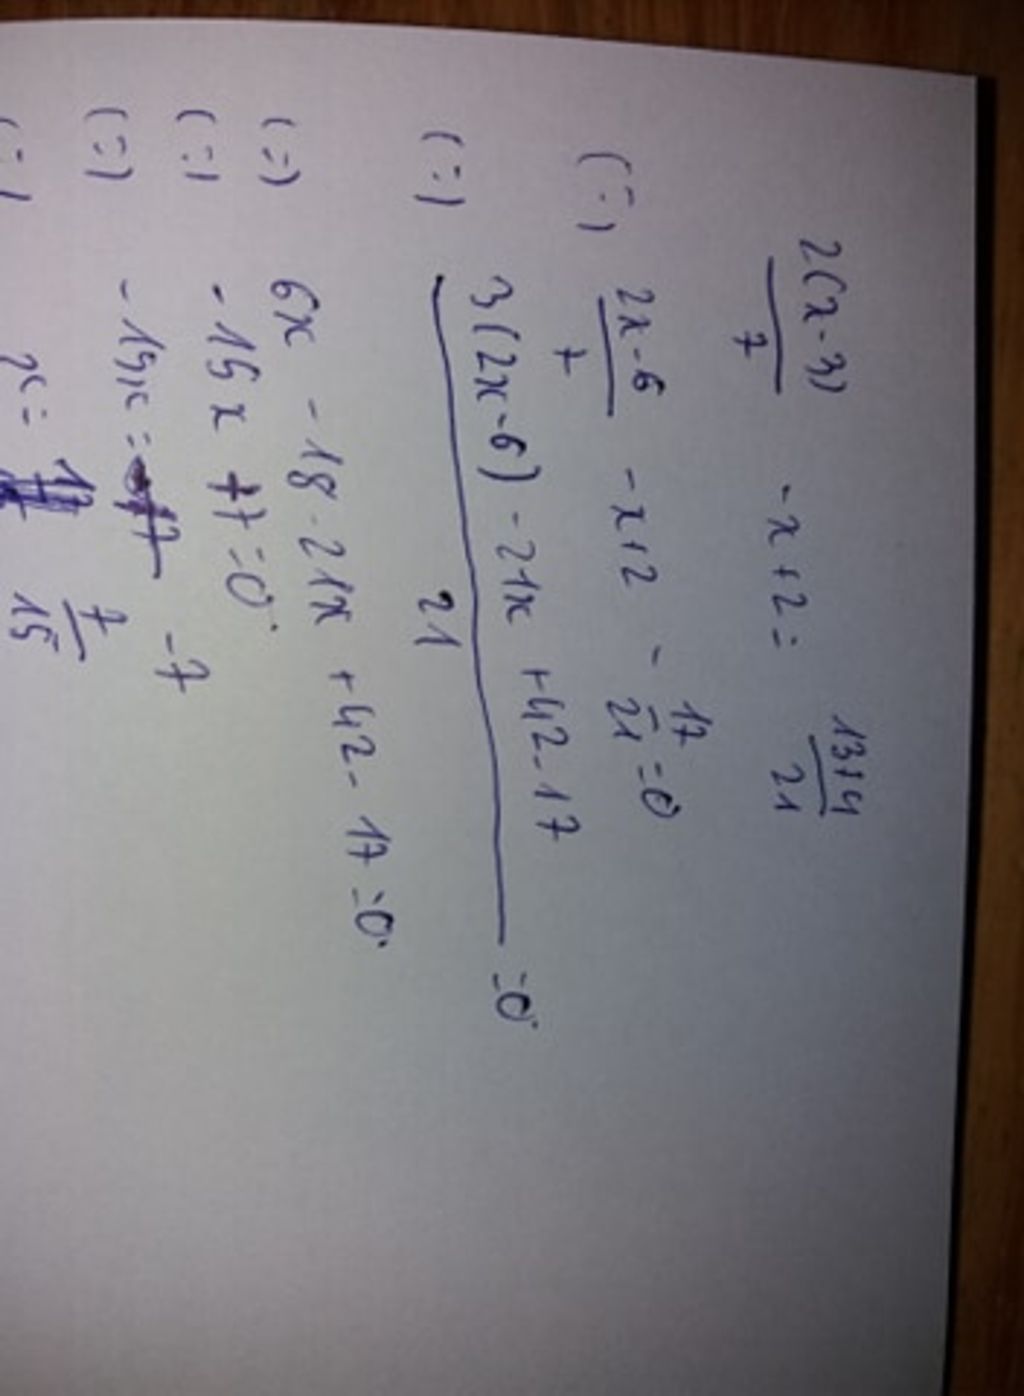 2(x-3)/7 -x+2= 13+4/21
(=) 2x-6/7 -x+2 - 17/21 =0
(=) 3(2x-6) -21x +42-17/21 =0
(=) 6x -18-21x +42-17=0
(=) -15x +7=0
(=) -15x= -7
(=) x= 7/15